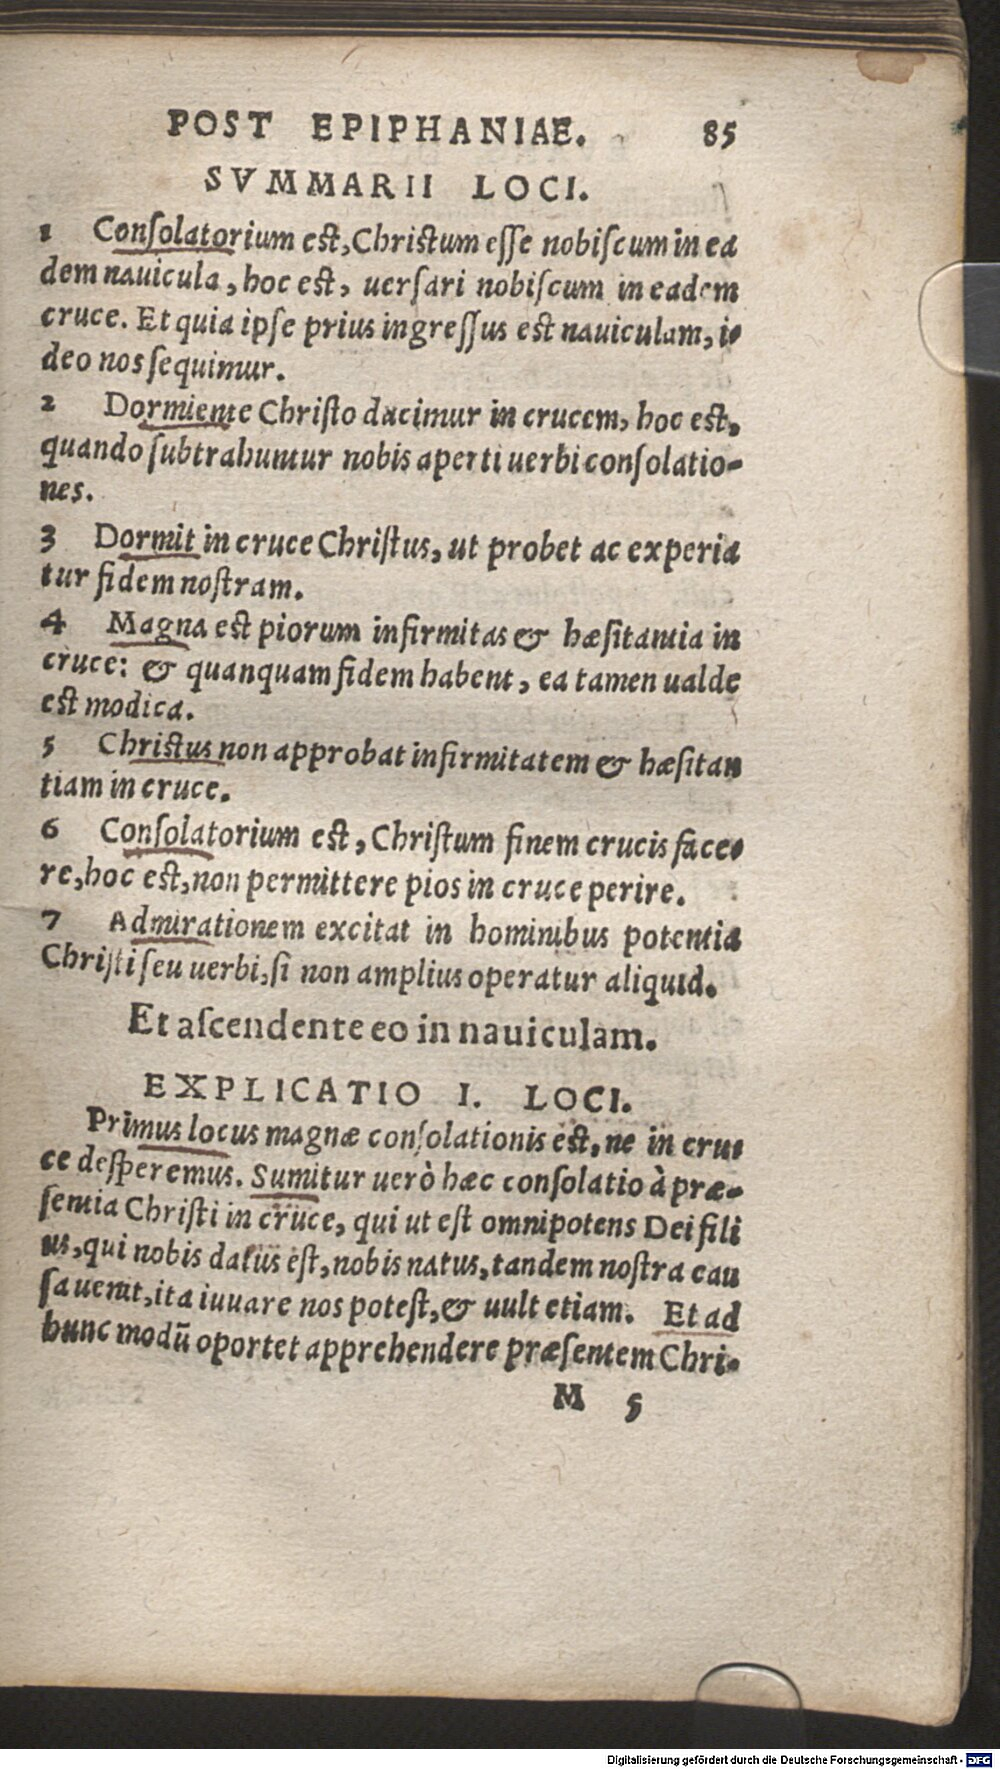 POST EPIPHANIAE. 85
SVMMARII LOCI.
1 Conſolatorium est, Christum eſſe nobiſcum in ea
dem nauicula, hoc est, uerſari nobiſcum in eadem
cruce. Et quia ipſe prius ingreſſus est nauiculam, i-
deo nos ſequimur.
2 Dormiente Chriſto ducimur in crucem, hoc est,
quando ſubtrahuntur nobis aperti uerbi conſolatio-
nes.
3 Dormit in cruce Chriſtus, ut probet ac experia
tur fidem noſtram.
4 Magna est piorum infirmitas & hæſitantia in
cruce: & quanquam fidem habent, ea tamen ualde
est modica.
5 Christus non approbat infirmitatem & hæſitan
tiam in cruce.
6 Conſolatorium est, Chriſtum finem crucis face-
re, hoc est, non permittere pios in cruce perire.
7 Admirationem excitat in hominibus potentia
Chriſti ſeu uerbi, ſi non amplius operatur aliquid.
Et aſcendente eo in nauiculam.
EXPLICATIO I. LOCI.
Primus locus magnæ conſolationis est, ne in cru-
ce deſperemus. Sumitur uerò hæc conſolatio à præ-
ſentia Chriſti in cruce, qui ut eſt omnipotens Dei fili
us, qui nobis datus est, nobis natus, tandem noſtra cau
ſa uenit, ita iuuare nos poteſt, & uult etiam. Et ad
hunc modū oportet apprehendere præſentem Chri-
M 5
Digitalisierung gefördert durch die Deutsche Forschungsgemeinschaft - DFG